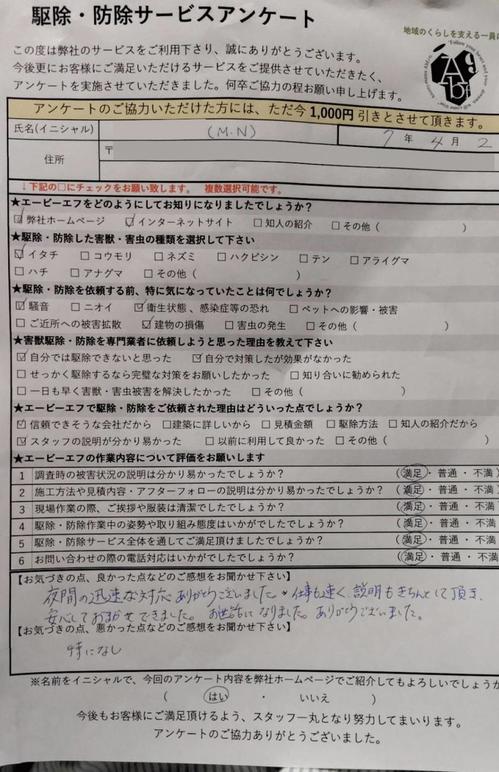 駆除・防除サービスアンケート
地域のくらしを支える一員に
この度は弊社のサービスをご利用下さり、誠にありがとうございます。
今後更にお客様にご満足いただけるサービスをご提供させていただきたく、
アンケートを実施させていただきました。何卒ご協力の程お願い申し上げます。
アンケートのご協力いただけた方には、ただ今1,000円引きとさせて頂きます。
氏名(イニシャル) (M.N) 7年 4月 2
住所 〒
↓下記の□にチェックをお願い致します。 複数選択可能です。
★エービーエフをどのようにしてお知りになりましたでしょうか?
☑弊社ホームページ ☑インターネットサイト □知人の紹介 □その他( )
★駆除・防除した害獣・害虫の種類を選択して下さい
☑イタチ □コウモリ □ネズミ □ハクビシン □テン □アライグマ
□ハチ □アナグマ □その他( )
★駆除・防除を依頼する前、特に気になっていたことは何でしょうか?
☑騒音 □ニオイ ☑衛生状態、感染症等の恐れ □ペットへの影響・被害
□ご近所への被害拡散 ☑建物の損傷 □害虫の発生 □その他( )
★害獣駆除・防除を専門業者に依頼しようと思った理由を教えて下さい
☑自分では駆除できないと思った ☑自分で対策したが効果がなかった
□せっかく駆除するなら完璧な対策をお願いしたかった □知り合いに勧められた
□一日も早く害獣・害虫被害を解決したかった □その他( )
★エービーエフで駆除・防除をご依頼された理由はどういった点でしょうか?
☑信頼できそうな会社だから □建築に詳しいから □見積金額 □駆除方法 □知人の紹介だから
☑スタッフの説明が分かり易かった □以前に利用して良かった □その他(
★エービーエフの作業内容について評価をお願いします
1 調査時の被害状況の説明は分かり易かったでしょうか? (満足・普通・不満
2 施工方法や見積内容・アフターフォローの説明は分かり易かったでしょうか? (満足・普通・不満
3 現場作業の際、ご挨拶や服装は清潔でしたでしょうか? (満足・普通・不満
4 駆除・防除作業中の姿勢や取り組み態度はいかがでしたでしょうか? (満足・普通・不満
5 駆除・防除サービス全体を通してご満足頂けましたでしょうか? (満足・普通・不満
6 お問い合わせの際の電話対応はいかがでしたでしょうか? (満足・普通・不満
【お気づきの点、良かった点などのご感想をお聞かせ下さい】
夜間の迅速な対応ありがとうございました。仕事も速く、説明もきちんとして頂き、
安心しておまかせできました。お世話になりました。ありがとうございました。
【お気づきの点、悪かった点などのご感想をお聞かせ下さい】
特になし
※名前をイニシャルで、今回のアンケート内容を弊社ホームページでご紹介してもよろしいでしょうか
( はい ・ いいえ )
今後もお客様にご満足頂けるよう、スタッフ一丸となり努力してまいります。
アンケートのご協力ありがとうございました。